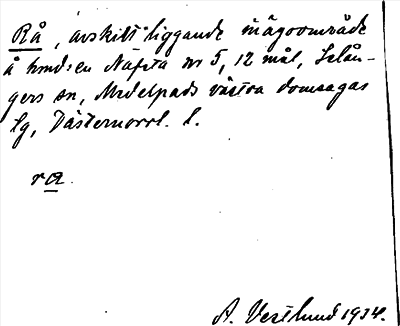 Rå, avskilt liggande inägoområde
å hmd:en Näfsta nr 5, 12 mål, Selån-
gers sn, Medelpads västra domsagas
lg, Västernorrl. l.
ra
A. Vestlund 1934.